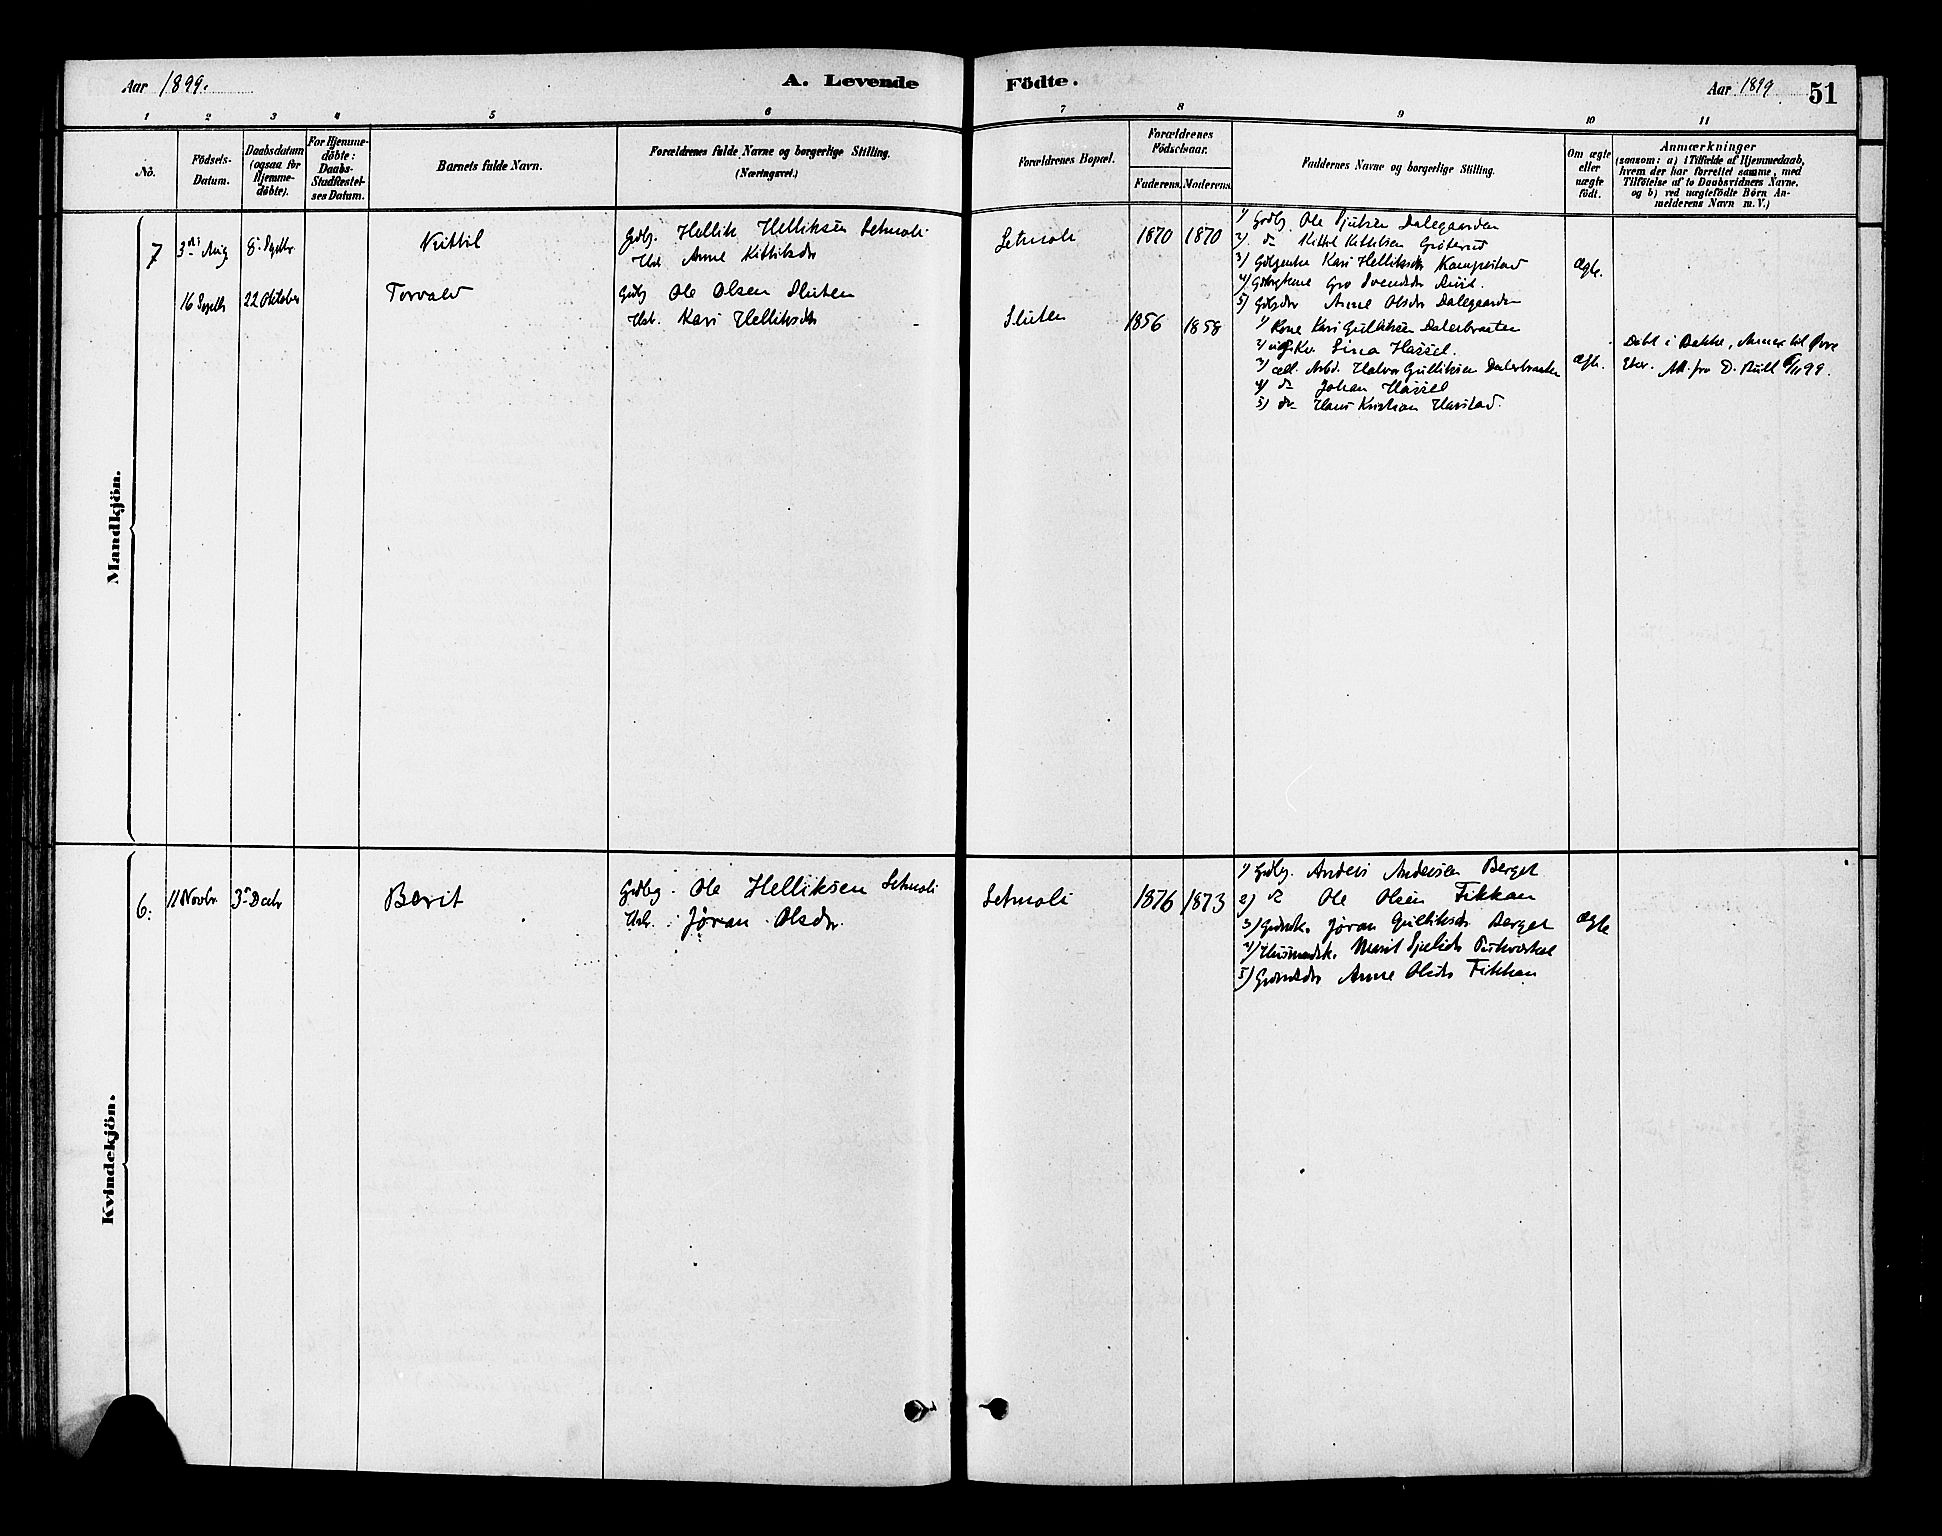 Aar 1899.
A. Levende Födte.
Aar 1899.
51
1 2 3 4 5 6 7 8 9 10 11
No.
Födsels-Datum.
Daabsdatum (ogsaa for Hjemmedöbte).
For Hjemmedöbte: Daabs-Stadfæstelses Datum.
Barnets fulde Navn.
Forældrenes fulde Navne og borgerlige Stilling.
(Næringsvei.)
Forældrenes Bopæl.
Forældrenes Födselsaar.
Faderens. Moderens.
Faddernes Navne og borgerlige Stilling.
Om ægte eller uægte födt.
Anmærkninger
(saasom: a) i Tilfælde af Hjemmedaab,
hvem der har forrettet samme, med
Tilföielse af to Daabsvidners Navne,
og b) ved uægtefödte Börn An-
melderens Navn m. V.)
Mandkjön.
7 3die Aug 8. Septbr. Kittil
Gdbg. Hellik Helliksen Setmoli
Hst. Anne Kittilsdr
Setmoli 1870 1870
1) Gdbg Ole
Dalegaarden
2) do Kittil Kittilsen
3) Kari Helliksdr
4) Gro Svendsdr
5) Anne Olsdr Dalegaarden
Ægte.
16 Septbr 22 Oktober Torvald
Gdbg Ole Olsen Sluten
Hst. Kari Helliksdr
Sluten 1856 1858
1) Kone Kari Gulliksen Dalerbraaten
2) Sina Hassel.
3) Arbd. Halvor Gulliksen Dalerbraaten
4) do Johan Hassel
5) do Hans Kristian Harstad.
Ægte.
Døbt i Bakke, Annex til Øvre
Eker. Att. fra D. 99.
Kvindekjön.
6. 11 Novbr. 3 Decbr Berit
Gdbg. Ole Helliksen Setmoli
Hst. Jøran Olsdr.
Setmoli 1876 1873
1) Gdbg. Anders Andersen Berget
2) do Ole Olsen Fikkan
3) Gdmdk. Jøran Gulliksdr Berget
4) Husmandsk. Marit
5) Anne Olsdr Fikkan
Ægte